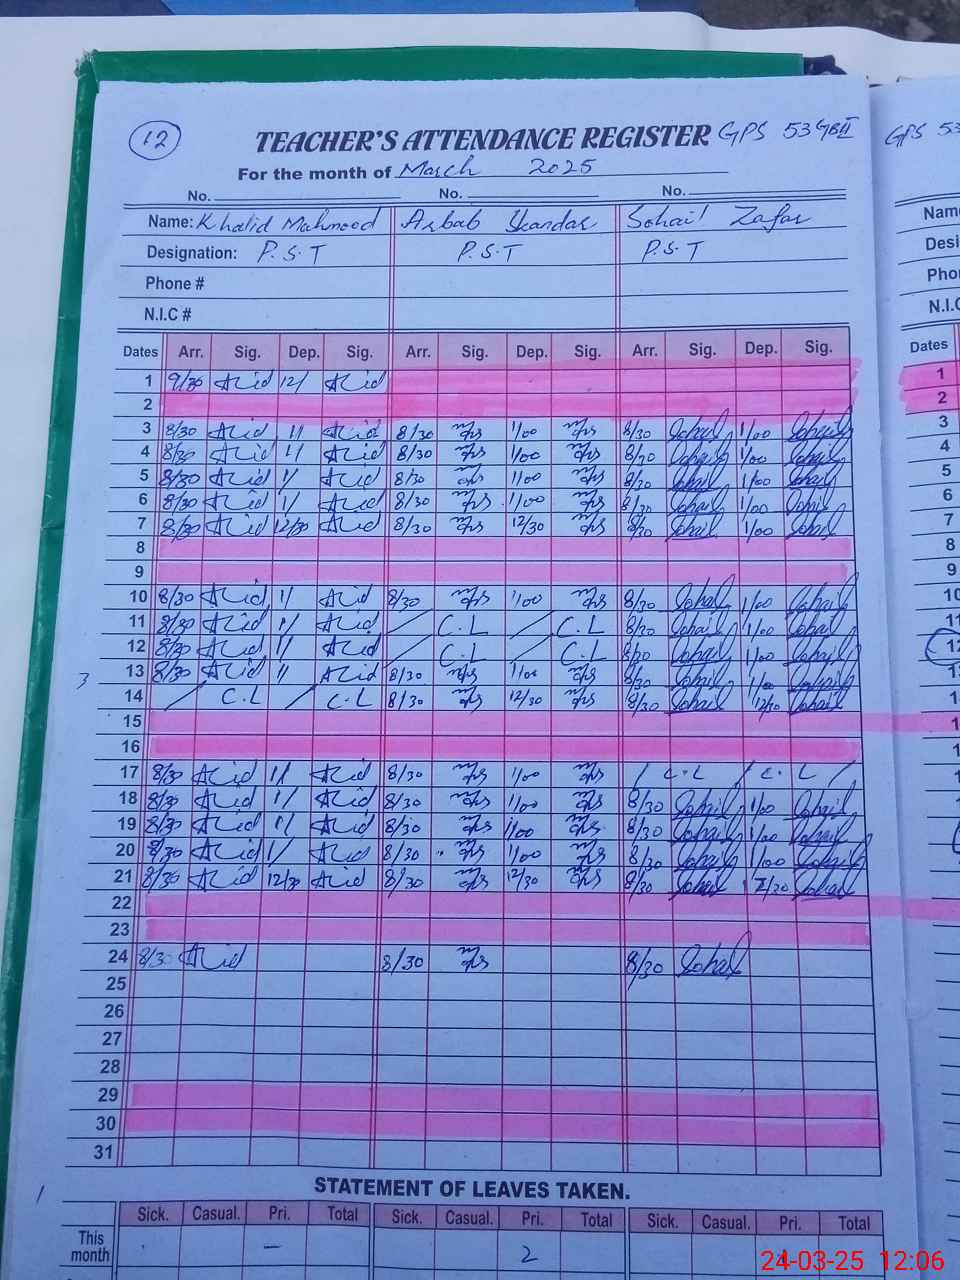 12
TEACHER'S ATTENDANCE REGISTER GPS 53 GBII GPS 53
For the month of March 2025
No. No. No.
Name: Khalid Mahmood Arbab Skandar Sohail Zafar Name
Designation: P.S.T P.S.T P.S.T Desi
Phone # Pho
N.I.C # N.I.C
Dates Arr. Sig. Dep. Sig. Arr. Sig. Dep. Sig. Arr. Sig. Dep. Sig. Dates
1 9/30 12/ 1
2 2
3 8/30 1/ 8/30 1/00 8/30 Sohail 1/00 Sohail 3
4 8/30 1/ 8/30 1/00 8/30 Sohail 1/00 Sohail 4
5 8/30 1/ 8/30 1/00 8/30 Sohail 1/00 Sohail 5
6 8/30 1/ 8/30 1/00 8/30 Sohail 1/00 Sohail 6
7 8/30 12/30 8/30 12/30 8/30 Sohail 1/00 Sohail 7
8 8
9 9
10 8/30 1/ 8/30 1/00 8/30 Sohail 1/00 Sohail 10
11 8/30 1/ C.L C.L 8/30 Sohail 1/00 Sohail 11
12 8/30 1/ C.L C.L 8/30 Sohail 1/00 Sohail 12
3 13 8/30 1/ 8/30 1/00 8/30 Sohail 1/00 Sohail
14 C.L C.L 8/30 12/30 8/30 Sohail 12/30 Sohail
15
16
17 8/30 1/ 8/30 1/00 C.L C.L
18 8/30 1/ 8/30 1/00 8/30 Sohail 1/00 Sohail
19 8/30 1/ 8/30 1/00 8/30 Sohail 1/00 Sohail
20 8/30 1/ 8/30 1/00 8/30 Sohail 1/00 Sohail
21 8/30 12/30 8/30 12/30 8/30 Sohail 12/30 Sohail
22
23
24 8/30 8/30 8/30 Sohail
25
26
27
28
29
30
31
STATEMENT OF LEAVES TAKEN.
Sick. Casual. Pri. Total Sick. Casual. Pri. Total Sick. Casual. Pri. Total
This month – 2
24-03-25 12:06